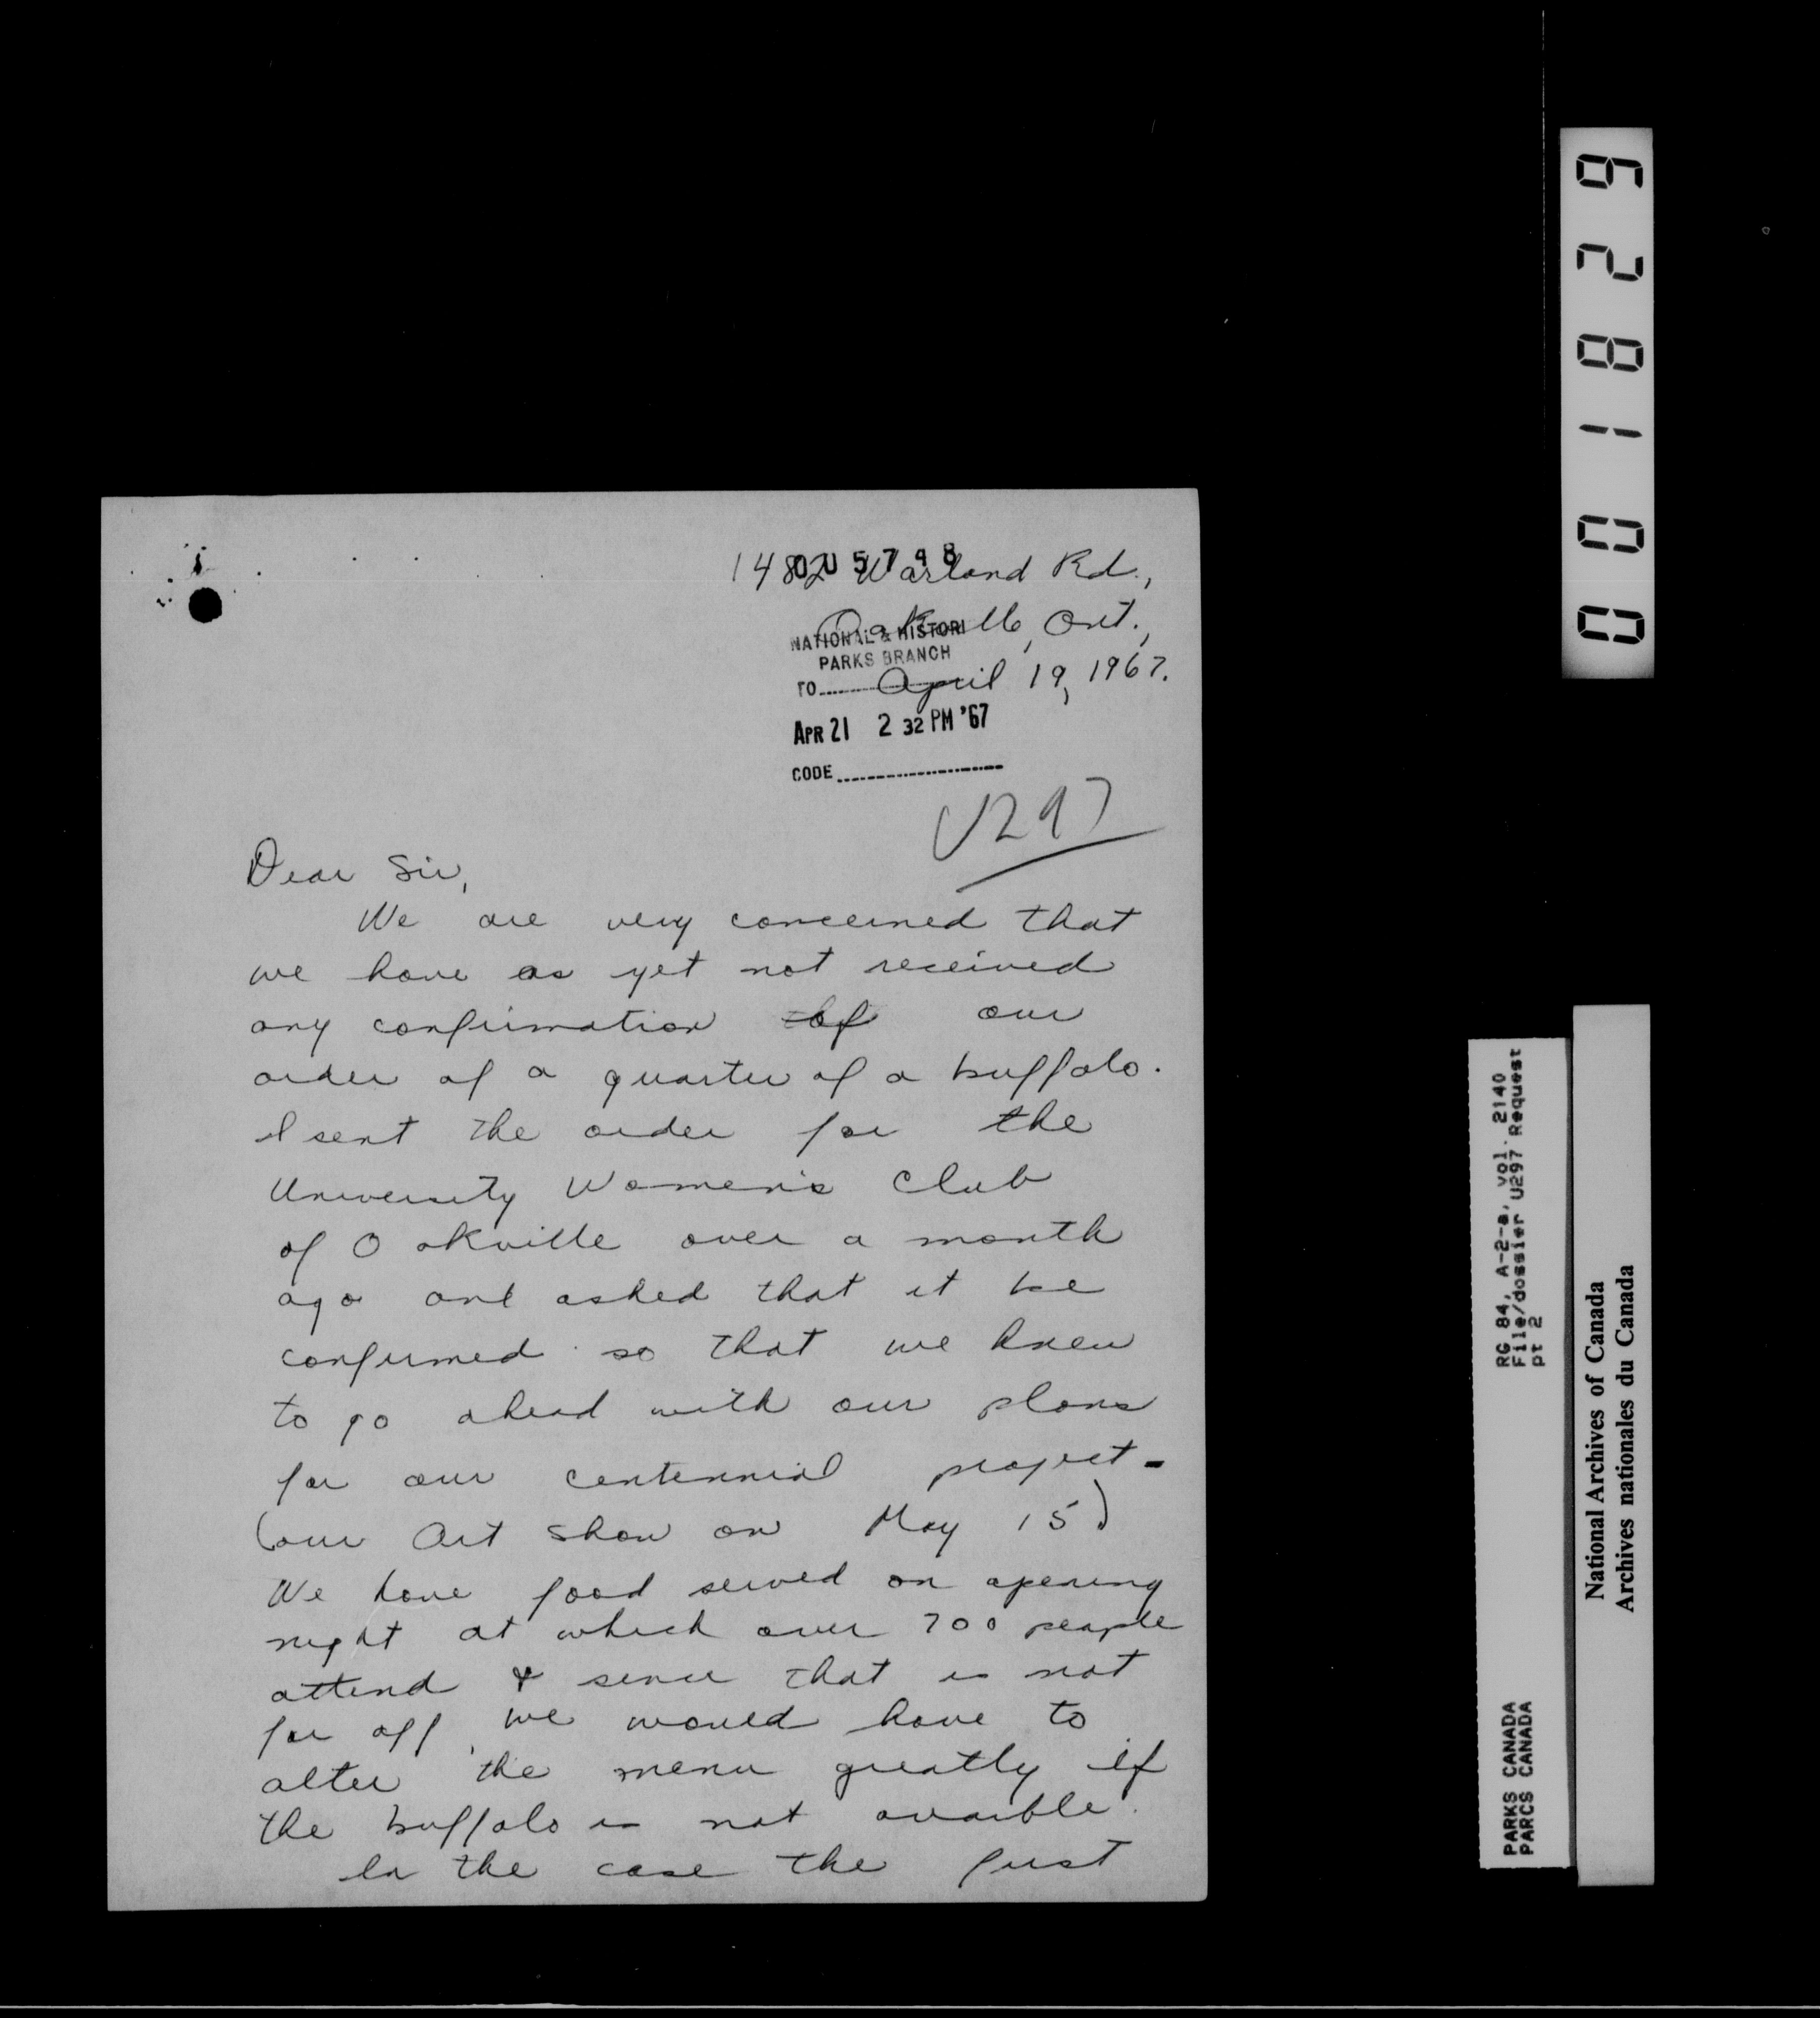 005748
1482 Warland Rd.,
Oakville, Ont.,
NATIONAL & HISTORI
PARKS BRANCH
TO
April 19, 1967.
APR 21 2 32 PM '67
CODE
U297
Dear Sir,
We are very concerned that
we have as yet not received
any confirmation of our
order of a quarter of a buffalo.
I sent the order for the
University Women's Club
of Oakville over a month
ago and asked that it be
confirmed so that we knew
to go ahead with our plans
for our centennial project -
(our Art Show on May 15)
We have food served on opening
night at which over 700 people
attend & since that is not
far off, we would have to
alter the menu greatly if
the buffalo is not avaible.
In the case the first
001829
RG 84, A-2-a, vol. 2140
File/dossier U297 Request
pt 2
PARKS CANADA
PARCS CANADA
National Archives of Canada
Archives nationales du Canada